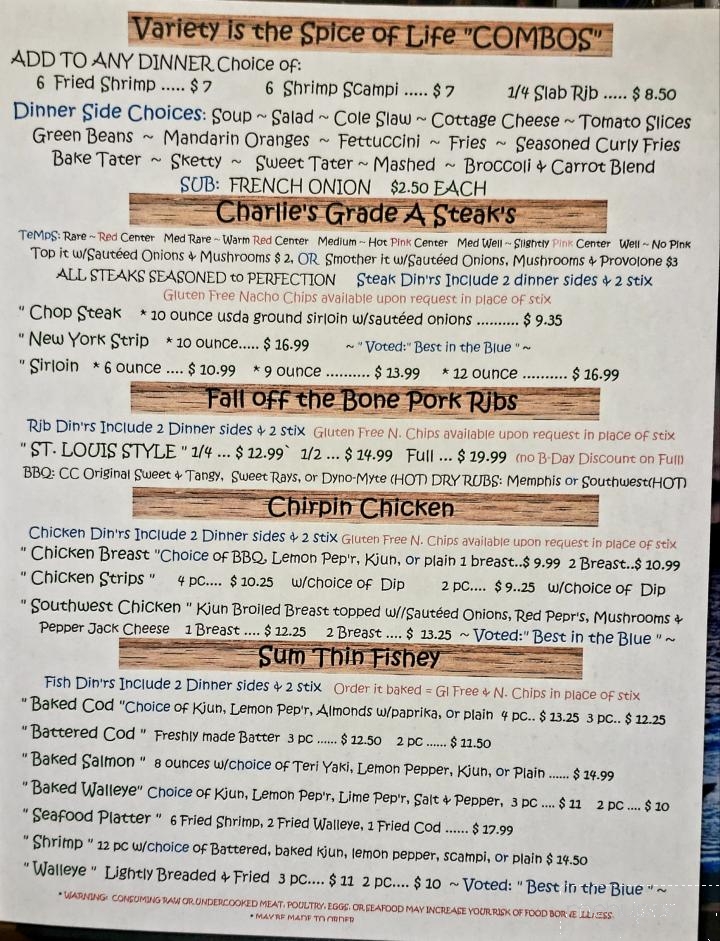 Variety is the Spice of Life "COMBOS"
ADD TO ANY DINNER Choice of:
6 Fried Shrimp ..... $ 7 6 Shrimp Scampi ..... $ 7 1/4 Slab Rib ..... $ 8.50
Dinner Side Choices: Soup ~ Salad ~ Cole Slaw ~ Cottage Cheese ~ Tomato Slices
Green Beans ~ Mandarin Oranges ~ Fettuccini ~ Fries ~ Seasoned Curly Fries
Bake Tater ~ Sketty ~ Sweet Tater ~ Mashed ~ Broccoli & Carrot Blend
SUB: FRENCH ONION $2.50 EACH
Charlie's Grade A Steak's
TeMpS: Rare ~ Red Center Med Rare ~ Warm Red Center Medium ~ Hot Pink Center Med Well ~ Slightly Pink Center Well ~ No Pink
Top it w/Sautéed Onions & Mushrooms $ 2, OR Smother it w/Sautéed Onions, Mushrooms & Provolone $3
ALL STEAKS SEASONED to PERFECTION Steak Din'rs Include 2 dinner sides & 2 stix
Gluten Free Nacho Chips available upon request in place of stix
" Chop Steak * 10 ounce usda ground sirloin w/sautéed onions .......... $ 9.35
" New York Strip * 10 ounce..... $ 16.99 ~ " Voted:" Best in the Blue " ~
" Sirloin * 6 ounce .... $ 10.99 * 9 ounce .......... $ 13.99 * 12 ounce .......... $ 16.99
Fall off the Bone Pork Ribs
Rib Din'rs Include 2 Dinner sides & 2 stix Gluten Free N. Chips available upon request in place of stix
" ST. LOUIS STYLE " 1/4 ... $ 12.99` 1/2 ... $ 14.99 Full ... $ 19.99 (no B-Day Discount on Full)
BBQ: CC Original Sweet & Tangy, Sweet Rays, or Dyno-Myte (HOT) DRY RUBS: Memphis or Southwest(HOT)
Chirpin Chicken
Chicken Din'rs Include 2 Dinner sides & 2 stix Gluten Free N. Chips available upon request in place of stix
" Chicken Breast "Choice of BBQ, Lemon Pep'r, Kjun, or plain 1 breast..$ 9.99 2 Breast..$ 10.99
" Chicken Strips " 4 pc.... $ 10.25 w/choice of Dip 2 pc.... $ 9..25 w/choice of Dip
" Southwest Chicken " Kjun Broiled Breast topped w//Sautéed Onions, Red Pepr's, Mushrooms &
Pepper Jack Cheese 1 Breast .... $ 12.25 2 Breast .... $ 13.25 ~ Voted:" Best in the Blue " ~
Sum Thin Fishey
Fish Din'rs Include 2 Dinner sides & 2 stix Order it baked = Gl Free & N. Chips in place of stix
" Baked Cod "Choice of Kjun, Lemon Pep'r, Almonds w/paprika, or plain 4 pc.. $ 13.25 3 pc.. $ 12.25
" Battered Cod " Freshly made Batter 3 pc ...... $ 12.50 2 pc ...... $ 11.50
" Baked Salmon " 8 ounces w/choice of Teri Yaki, Lemon Pepper, Kjun, or Plain ...... $ 14.99
" Baked Walleye" Choice of Kjun, Lemon Pep'r, Lime Pep'r, Salt & Pepper, 3 pc .... $ 11 2 pc .... $ 10
" Seafood Platter " 6 Fried Shrimp, 2 Fried Walleye, 1 Fried Cod ...... $ 17.99
" Shrimp " 12 pc w/choice of Battered, baked kjun, lemon pepper, scampi, or plain $ 14.50
" Walleye " Lightly Breaded & Fried 3 pc.... $ 11 2 pc.... $ 10 ~ Voted: " Best in the Blue " ~
* WARNING: CONSUMING RAW OR UNDERCOOKED MEAT, POULTRY, EGGS, OR SEAFOOD MAY INCREASE YOUR RISK OF FOOD BORNE ILLNESS
* MAY BE MADE TO ORDER